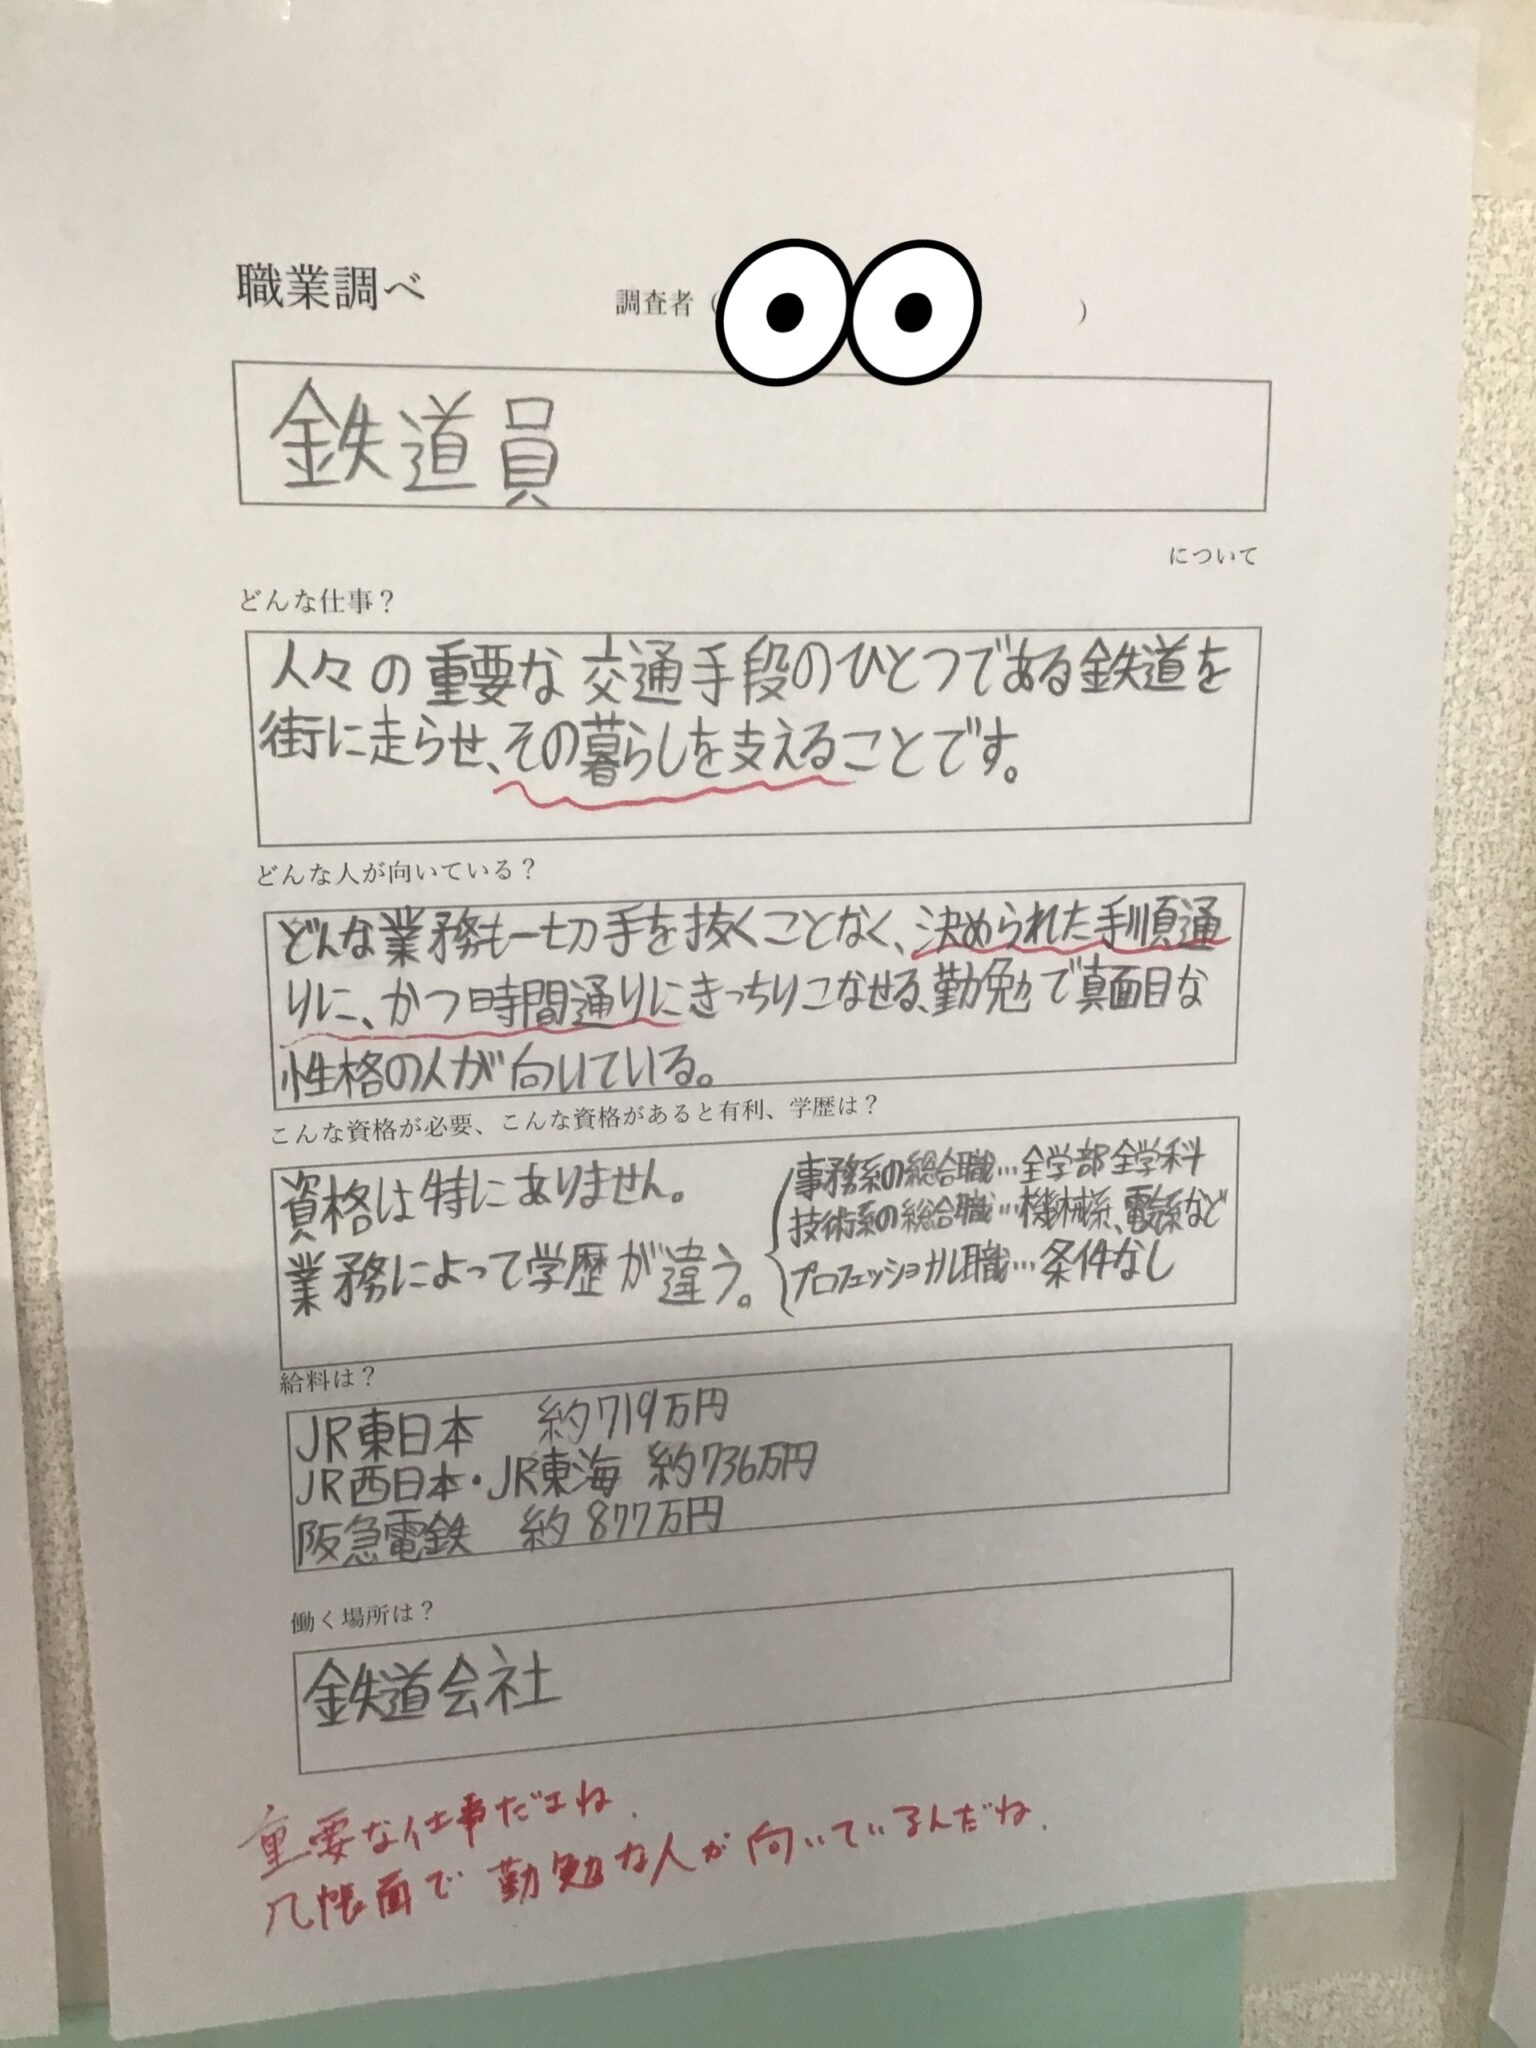 職業調べ 調査者( )
鉄道員
について
どんな仕事？
人々の重要な交通手段のひとつである鉄道を
街に走らせ、その暮らしを支えることです。
どんな人が向いている？
どんな業務も一切手を抜くことなく、決められた手順通
りに、かつ時間通りにきっちりこなせる、勤勉で真面目な
性格の人が向いている。
こんな資格が必要、こんな資格があると有利、学歴は？
資格は特にありません。
業務によって学歴が違う。
事務系の総合職…全学部全学科
技術系の総合職…機械系、電気系など
プロフェッショナル職…条件なし
給料は？
JR東日本 約719万円
JR西日本・JR東海 約736万円
阪急電鉄 約877万円
働く場所は？
鉄道会社
重要な仕事だよね.
几帳面で勤勉な人が向いているんだね.